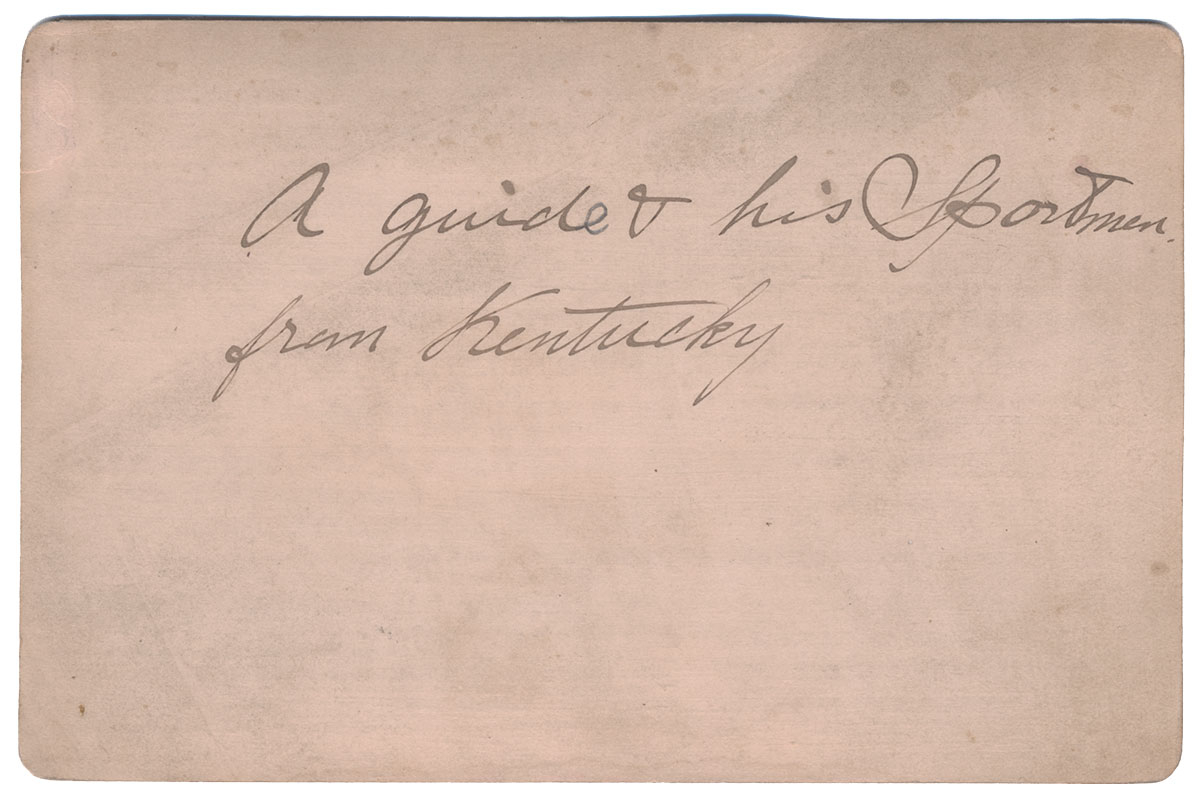 A guide & his Sportmen.
from Kentucky